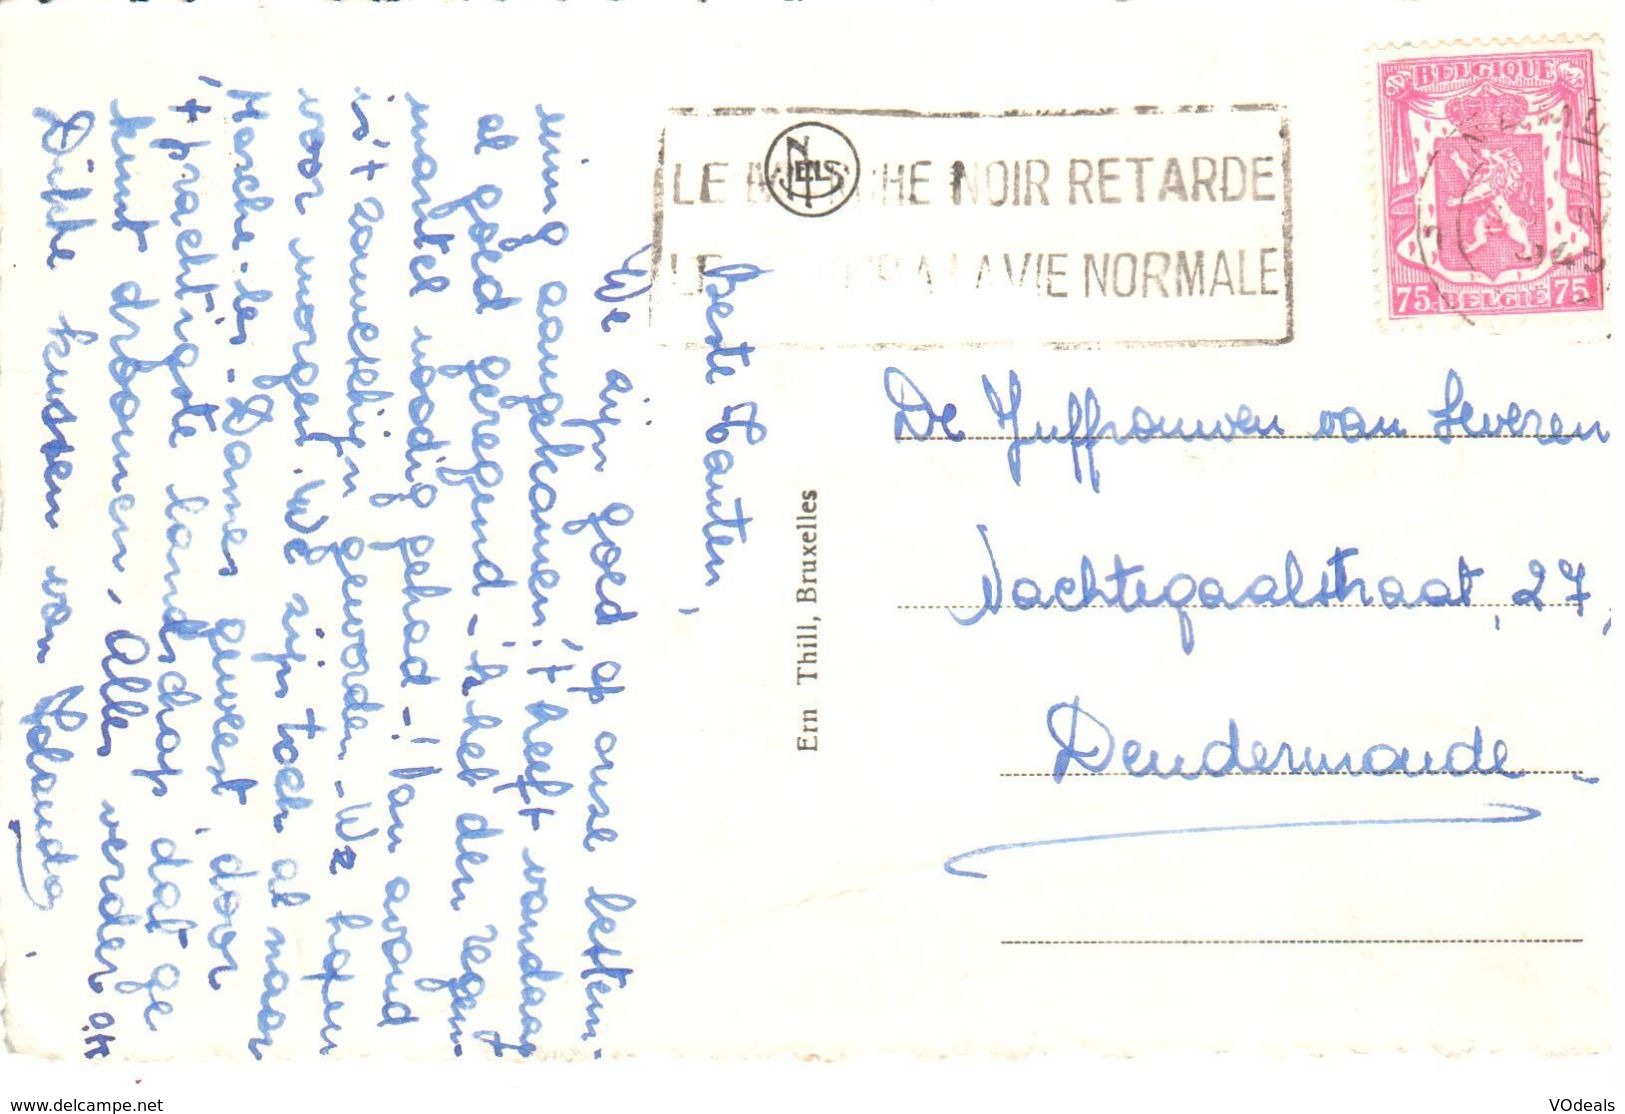 Beste Tanten,
We zijn goed op onze bestem-
ming aangekomen. 't heeft vandaag
al goed geregend - 'k heb den regen-
mantel noodig gehad - ! Van avond
is 't zonneschijn geworden - We hopen
voor morgen. We zijn toch al naar
Marche-les-Dames geweest door
't prachtigste landschap dat ge
kunt droomen. Alles verder O.K.
Dikke kussen van
LE MARCHE NOIR RETARDE
LE A LA VIE NORMALE
NELS
BELGIQUE
75 BELGIË 75
Ern Thill, Bruxelles
De Juffrouwen van Severen
Nachtegaalstraat, 27,
Dendermonde
www.delcampe.net
VOdeals